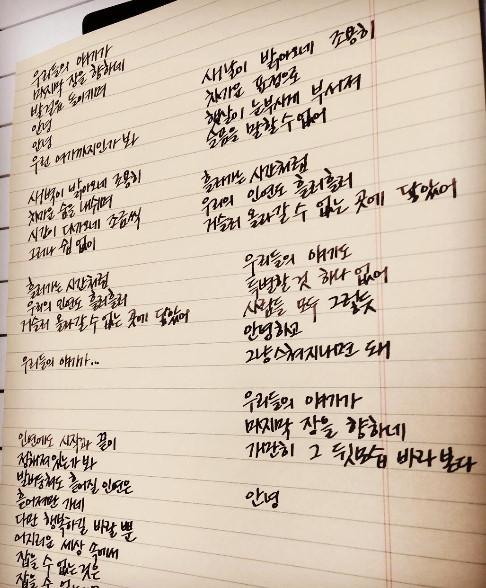 우리들의 얘기가
마지막 장을 향하네
발걸음 돌이키며
안녕
안녕
우린 여기까지인가 봐
새벽이 밝아오네 조용히
차가운 숨을 내쉬며
시간이 다가오네 조금씩
그러나 쉼 없이
흘러가는 시간처럼
우리의 인연도 흘러흘러
거슬러 올라갈 수 없는 곳에 닿았어
우리들의 얘기가...
인연에도 시작과 끝이
정해져있는가 봐
발버둥쳐도 흩어질 인연은
흩어져만 가네
다만 행복하길 바랄 뿐
어지러운 세상 속에서
잡을 수 없는 것은
잡을 수 없는
새날이 밝아오네 조용히
차가운 표정으로
햇살이 눈부시게 부서져
슬픔을 말할 수 없어
흘러가는 시간처럼
우리의 인연도 흘러흘러
거슬러 올라갈 수 없는 곳에 닿았어
우리들의 얘기도
특별할 것 하나 없어
사람들 모두 그렇듯
안녕하고
그냥 스쳐지나면 돼
우리들의 얘기가
마지막 장을 향하네
가만히 그 뒷모습 바라본다
안녕